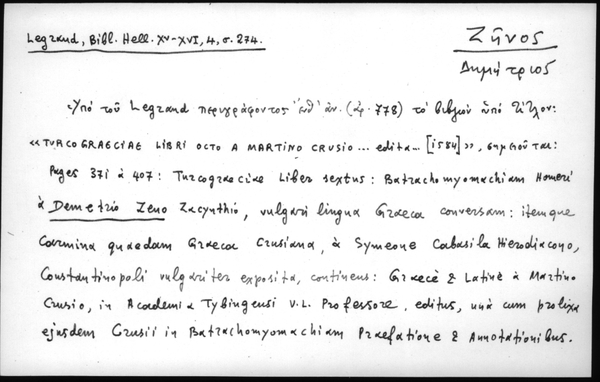 Legrand, Bibl. Hell. XV-XVI, 4, σ. 274.
Ζῆνος
Δημήτριος
Ὑπό τοῦ Legrand περιγράφοντος (ἀρ. 778) τό βιβλίον ὑπό τίτλον:
«TURCOGRAECIAE LIBRI OCTO A MARTINO CRUSIO... edita... [1584]», σημειοῦται:
Pages 371 à 407: Turcograeciae Liber sextus: Batrachomyomachiam Homeri
à Demetrio Zeno Zacynthio, vulgari lingua Graeca conversam: itemque
Carmina quaedam Graeca Crusiana, à Symeone Cabasila Hierodiacono,
Constantinopoli vulgariter exposita, continens: Graecè & Latinè à Martino
Crusio, in Academia Tybingensi V.L. Professore, editus, unà cum prolixa
ejusdem Crusii in Batrachomyomachiam Praefatione & Annotationibus.